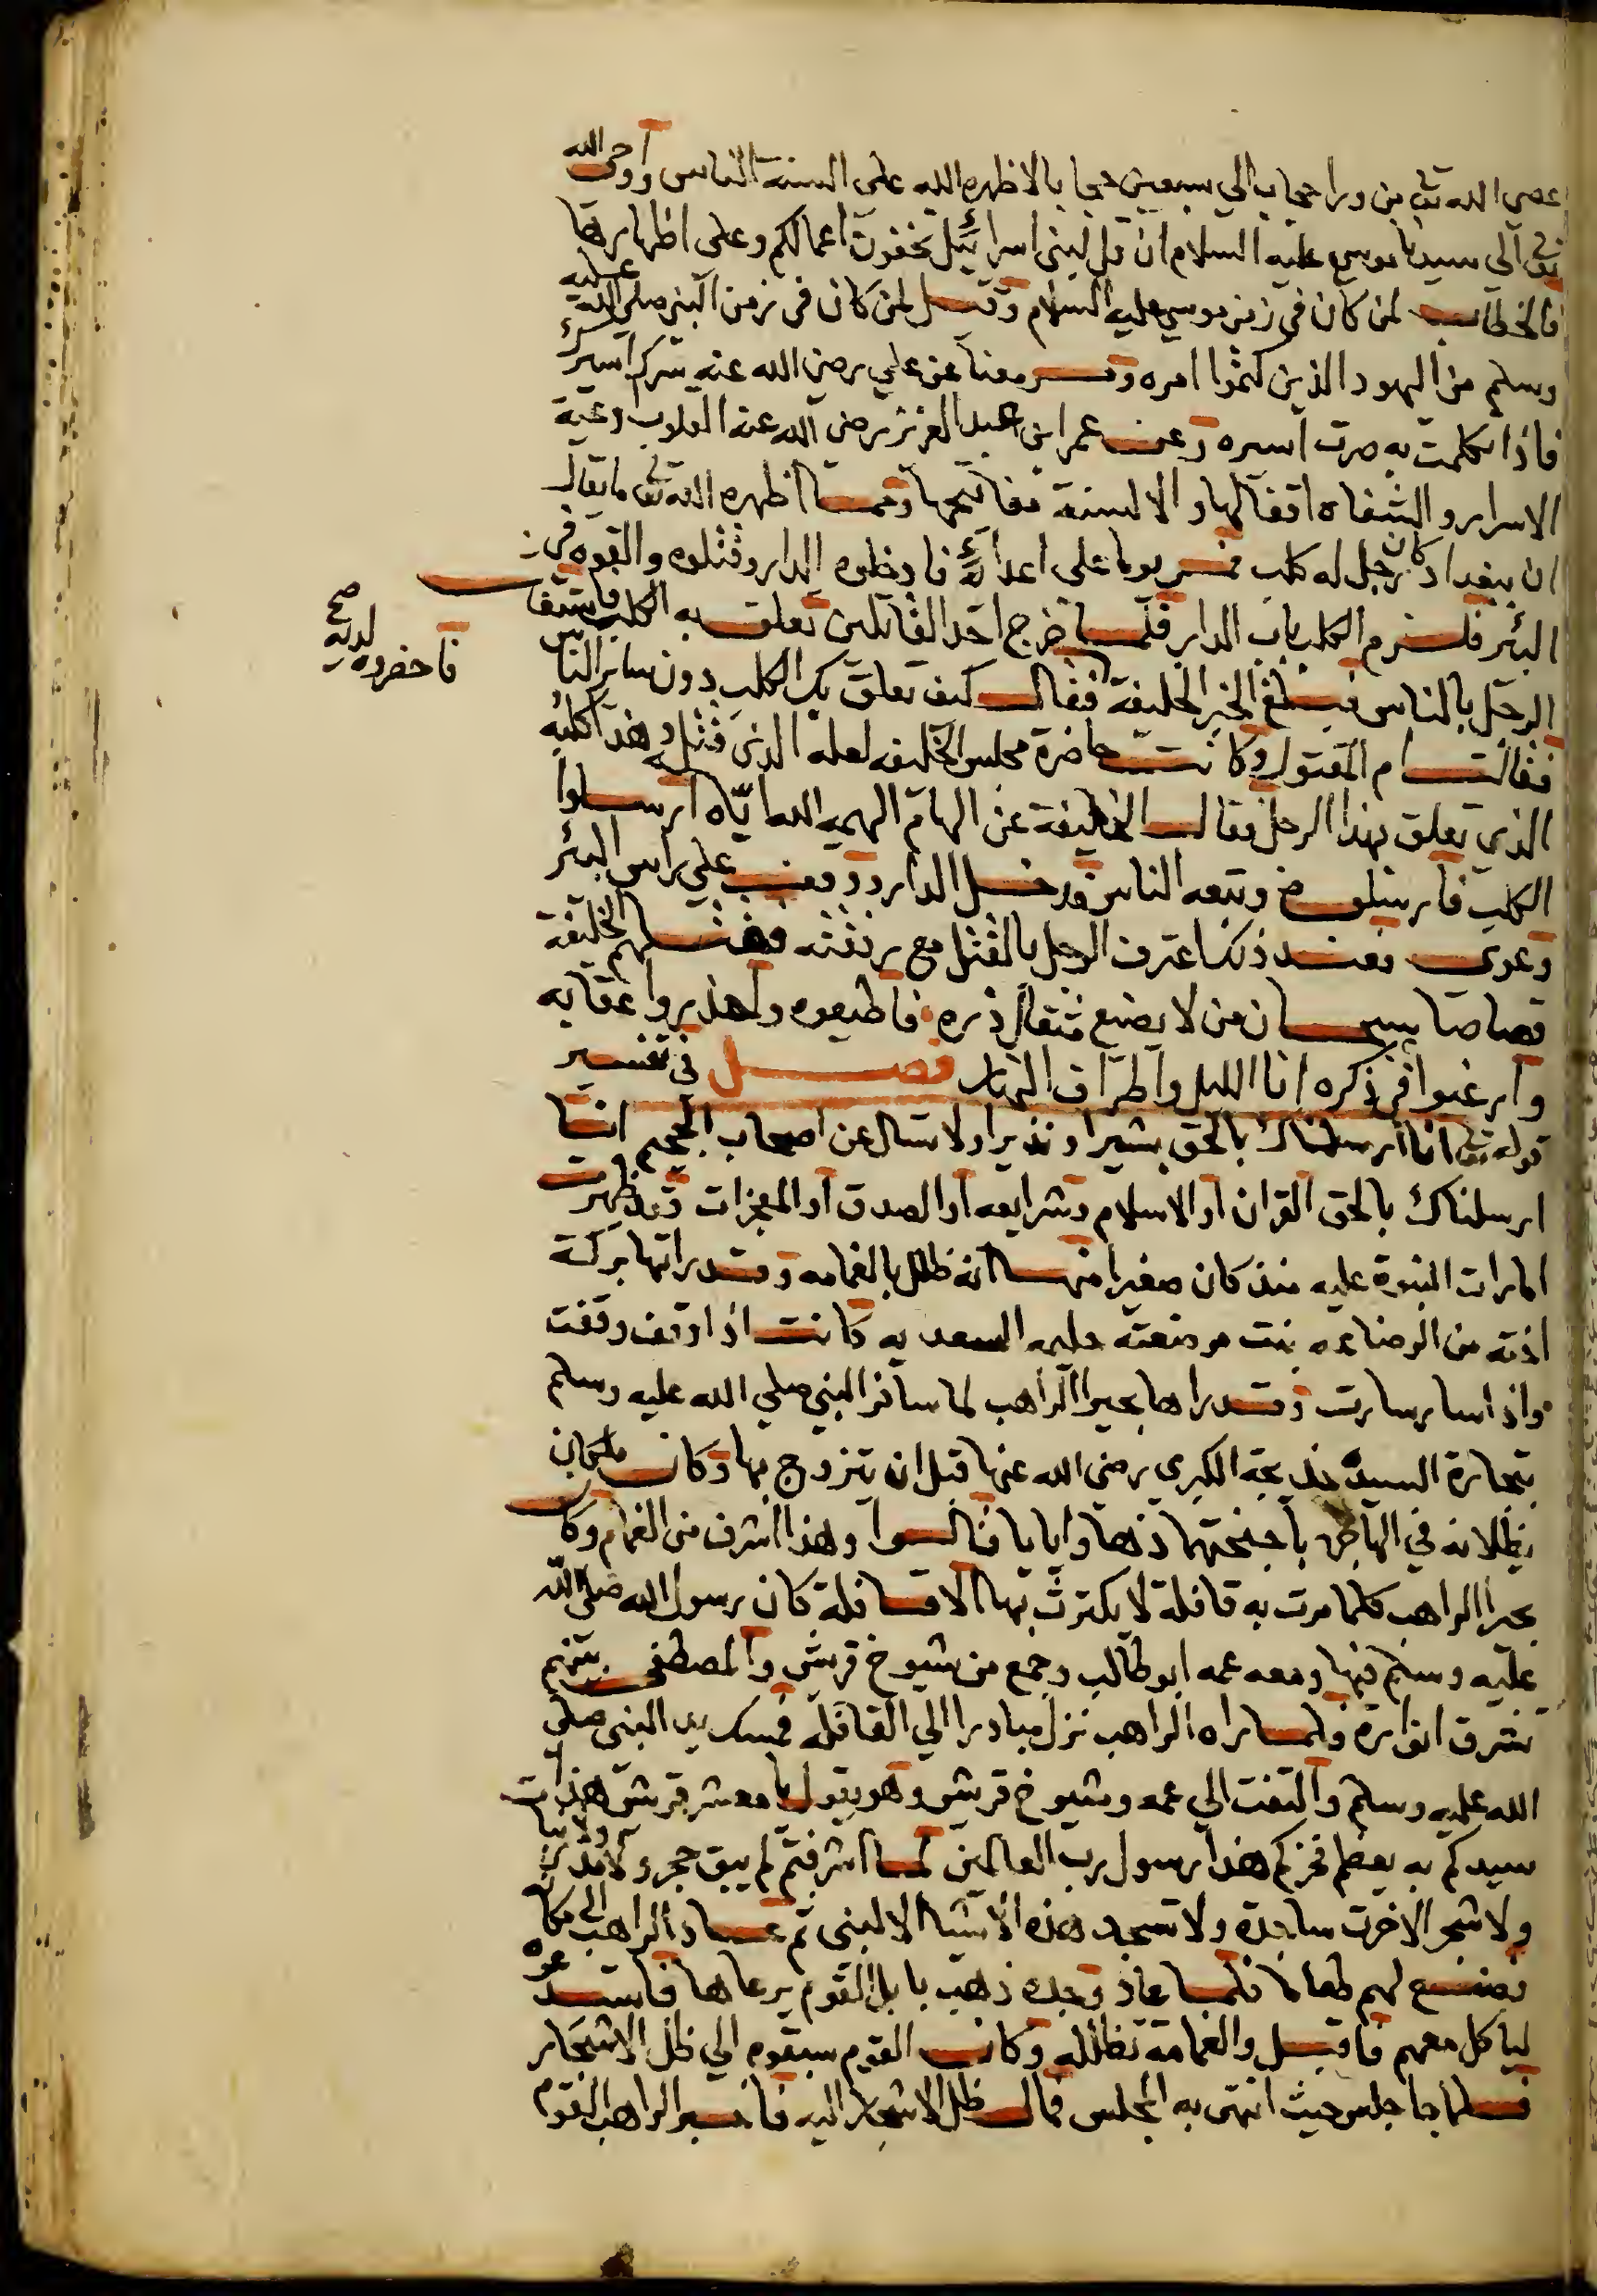 عصى الله تعالى من ورا حجاب الي سبعين حجابا لاظهره الله على السنة الناس وأوحى الله
تعالى الي سيدنا موسي عليه السلام ان قل لبنى اسرائيل تخفون اعمالكم وعلى اظهارها
فالخطاب لمن كان في زمن موسي عليه السلام وقيل لمن كان في زمن النبي صلى الله عليه
وسلم من اليهود الذين كتموا امره وقريب معنا عن علي رضى الله عنه سرك اسيرك
فاذا تكلمت به صرت اسيره وعن عمر ابن عبد العزيز رضى الله عنه القلوب وعية
الاسرار والشفاه اقفالها والالسنة مفاتيحها ومما اظهره الله تعالى ما يقال
ان ببغداد كان رجل له كلب فمر يوما على اعدائه فادخلوه الدار وقتلوه والقوه في
البئر فلزم الكلب باب الدار فلما خرج احد القاتلين تعلق به الكلب فاستغاث
الرجل بالناس فبلغ الخبر الخليفة فاحضروه لديه صح فقال كيف تعلق بك الكلب دون ساير الناس
فقالت ام المقتول وكانت حاضرة مجلس الخليفه لعله الذى قتل وهذا كلبه
الذي تعلق بهذا الرجل فقال الخليفة عن الهام الهمه الله اياه ارسلوا
الكلب فارسلوه وتبعه الناس فدخل الدار ووقف علي راس البئر
وعوى فعند ذلك اعترف الرجل بالقتل مع رفقته فقتلهم الخليفة
قصاصا سبحان من لا يضيع مثقال ذره فاطيعوه واحذروا عقابه
وارغبوا في ذكره انا الليل واطراف النهار فصل في تفسير
قوله تعالى انا ارسلناك بالحق بشيرا ونذيرا ولا تسال عن اصحاب الجحيم انا
ارسلناك بالحق القران او الاسلام وشرايعه او الصدق او المعجزات وقد ظهرت
امارات النبوة عليه منذ كان صغيرا منها انه ظلل بالغمامه وقد راتها بركة
اخته من الرضاعه بنت مرضعته حليمه السعديه كانت اذا وقف وقفت
واذا سار سارت وقد راها بحيرا الراهب لما سافر النبي صلي الله عليه وسلم
بتجارة السيدة خديجة الكبري رضى الله عنها قبل ان يتزوج بها وكان ملكان
يظللانه في الهاجره باجنحتهما ذهابا وايابا قالوا وهذا اشرف من الغمام وكان
بحيرا الراهب كلما مرت به قافلة لا يكترث بها الا قافلة كان رسول الله صلى الله
عليه وسلم فيها ومعه عمه ابو طالب وجمع من شيوخ قريش والمصطفى بينهم
تشرق انواره فلما راه الراهب نزل مبادرا الي القافله فمسك يد النبى صلى
الله عليه وسلم والتفت الي عمه وشيوخ قريش وهو يقول يا معشر قريش هذا
سيدكم به يعظم فخركم هذا رسول رب العالمين لما اشرفتم لم يبق حجر ولا مدر
ولا شجر الا خرت ساجدة ولا تسجد هذه الاشيا الا لنبى ثم عاد الراهب الي مكانه
فصنع لهم طعاما فلما عاد وجده ذهب بابل القوم يرعاها فاستدعوه
لياكل معهم فاقبل والغمامة تظلله وكان القوم سبقوه الي ظل الاشجار
فلما جا جلس حيث انتهى به المجلس فمال ظل الاشجار اليه فاخبر الراهب القوم